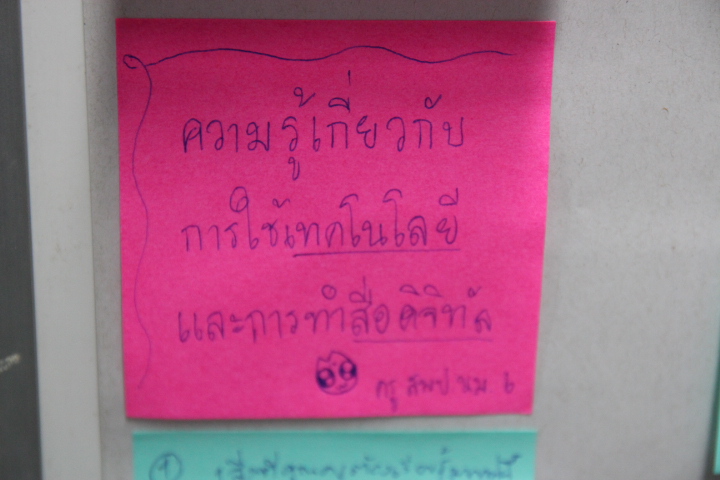 ความรู้เกี่ยวกับ
การใช้เทคโนโลยี
และการทำสื่อดิจิทัล
ครู สพป.นม. 6
①